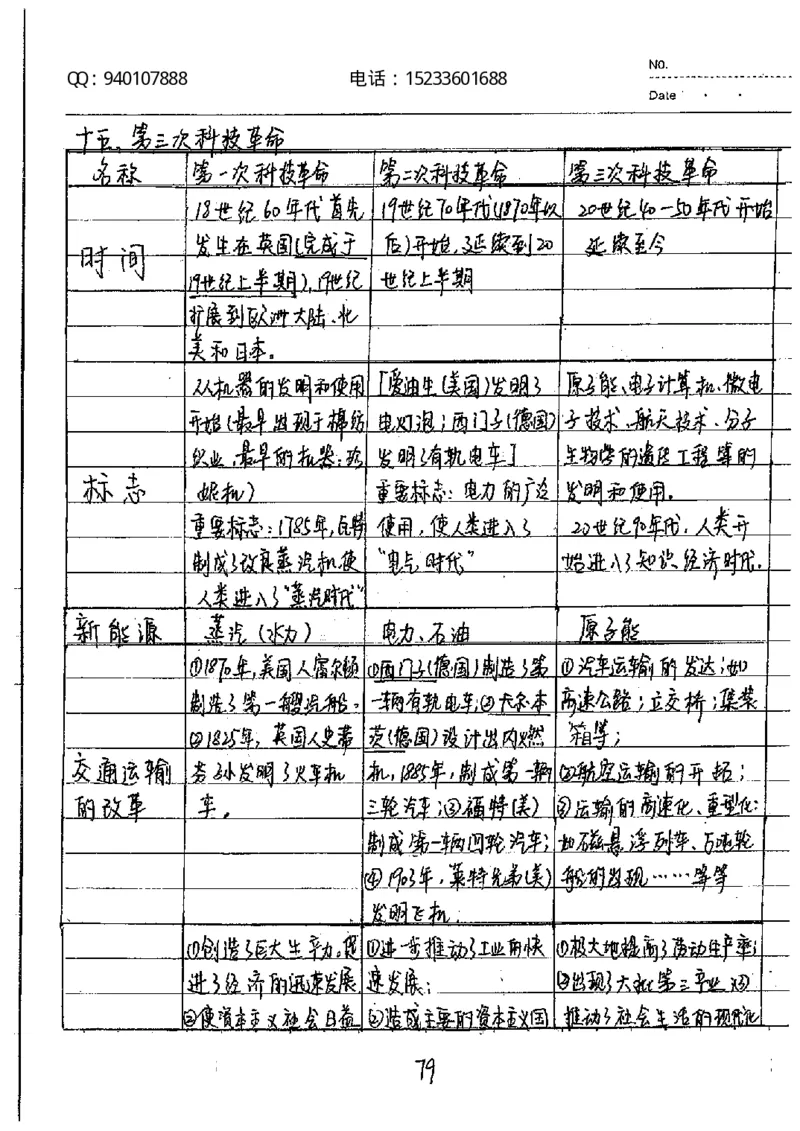 QQ：940107888 电话：15233601688 No.
Date
十五、第三次科技革命
名称 第一次科技革命 第二次科技革命 第三次科技革命
时间
18世纪60年代首先
发生在英国(完成于
19世纪上半期)，19世纪
扩展到欧洲大陆、北
美和日本。
19世纪70年代(1870年以
后)开始，延续到20
世纪上半期
20世纪40—50年代开始
延续至今
标志
从机器的发明和使用
开始(最早出现于棉纺
织业，最早的机器：珍
妮机)
重要标志：1785年，瓦特
制成了改良蒸汽机，使
人类进入了“蒸汽时代”
[爱迪生(美国)发明了
电灯泡；西门子(德国)
发明了有轨电车]
重要标志：电力的广泛
使用，使人类进入了
“电气时代”
原子能、电子计算机、微电
子技术、航天技术、分子
生物学的遗传工程等的
发明和使用。
20世纪90年代，人类开
始进入了知识经济时代。
新能源 蒸汽（水力） 电力、石油 原子能
交通运输
的改革
①1870年，美国人富尔顿
制造了第一艘汽船。
②1825年，英国人史蒂
芬孙发明了火车机
车。
①西门子(德国)制造了第
一辆有轨电车；②卡尔·本
茨(德国)设计出内燃
机，1885年，制成第一辆
三轮汽车；③福特(美)
制成第一辆四轮汽车；
④1903年，莱特兄弟(美)
发明飞机。
①汽车运输的发达；如
高速公路；立交桥；集装
箱等；
②航空运输的开拓；
③运输的高速化、重型化：
如磁悬浮列车、万吨轮
船的出现……等等
①创造了巨大生产力，促
进了经济的迅速发展
②使资本主义社会日益
①进一步推动了工业的快
速发展；
②造成主要的资本主义国
①极大地提高了劳动生产率；
②出现了大批第三产业 ③
推动了社会生活的现代化
79